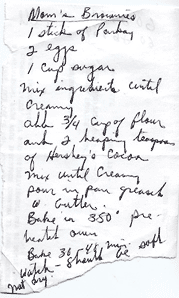 Mom's Brownies
1 stick of Parkay
2 eggs
1 cup sugar
mix ingredients until
creamy
add 3/4 cup of flour
and 2 heaping teaspoons
of Hershey's Cocoa
mix until creamy
pour in pan greased
w butter.
Bake in 350° pre-
heated oven
Bake 30 min.
Watch - should be soft
not dry